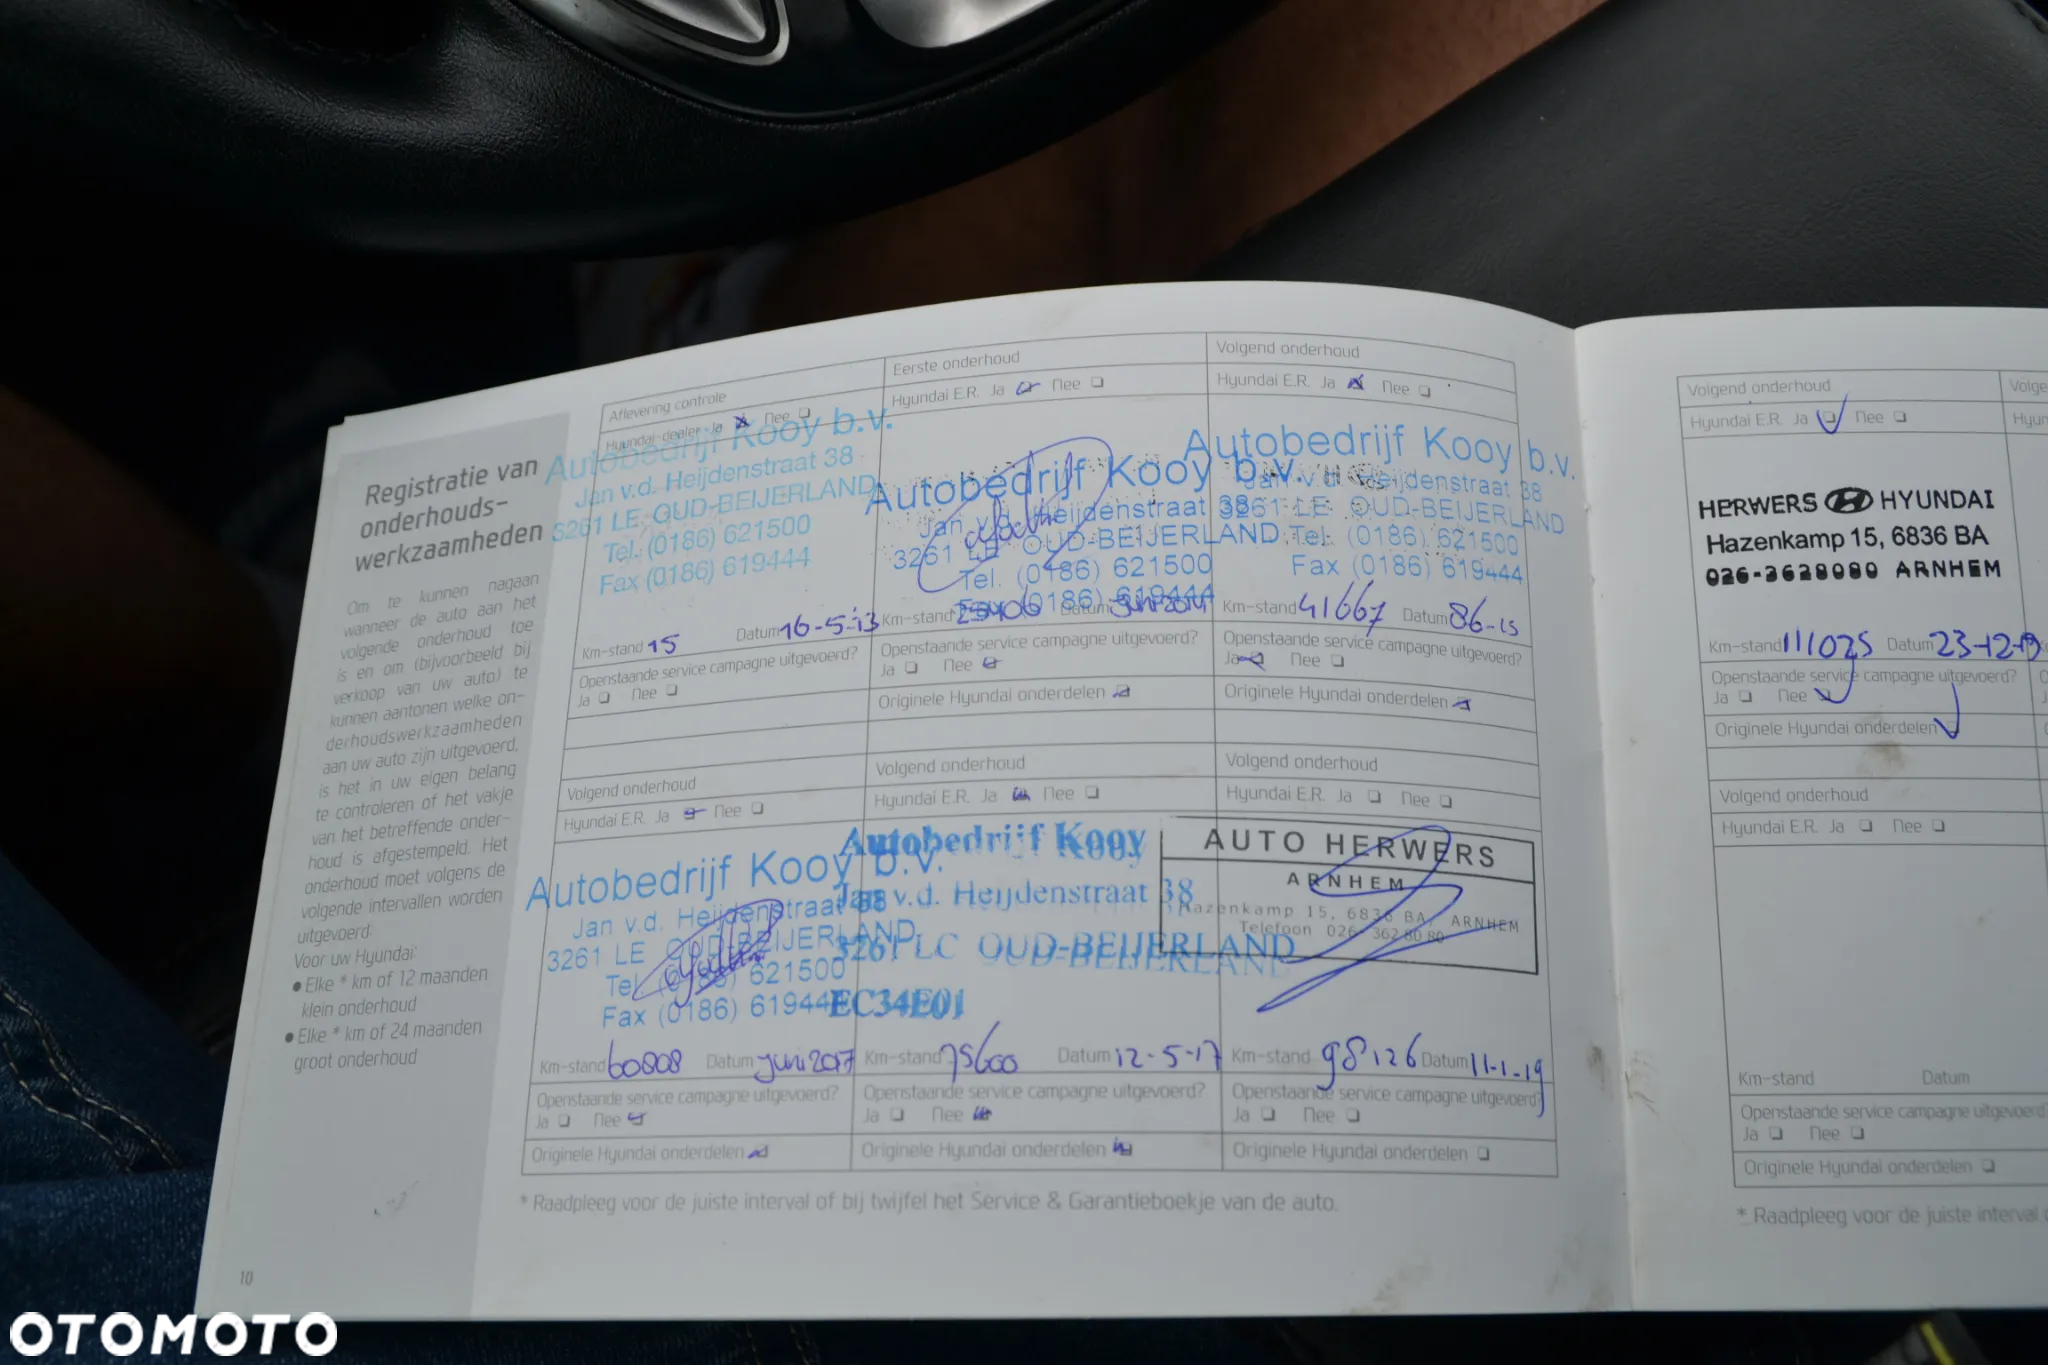 Registratie van
onderhouds-
werkzaamheden
Om te kunnen nagaan
wanneer de auto aan het
volgende onderhoud toe
is en om (bijvoorbeeld bij
verkoop van uw auto) te
kunnen aantonen welke on-
derhoudswerkzaamheden
aan uw auto zijn uitgevoerd,
is het in uw eigen belang
te controleren of het vakje
van het betreffende onder-
houd is afgestempeld. Het
onderhoud moet volgens de
volgende intervallen worden
uitgevoerd:
Voor uw Hyundai:
● Elke * km of 12 maanden
klein onderhoud
● Elke * km of 24 maanden
groot onderhoud
10
Aflevering controle
Hyundai-dealer Ja Nee
Autobedrijf Kooy b.v.
Jan v.d. Heijdenstraat 38
3261 LE OUD-BEIJERLAND
Tel. (0186) 621500
Fax (0186) 619444
Km-stand 15 Datum 16-5-13
Openstaande service campagne uitgevoerd?
Ja Nee
Eerste onderhoud
Hyundai E.R. Ja Nee
Autobedrijf Kooy b.v.
Jan v.d. Heijdenstraat 38
3261 LE OUD-BEIJERLAND
Tel. (0186) 621500
Fax (0186) 619444
Km-stand Datum juni 2014
Openstaande service campagne uitgevoerd?
Ja Nee
Originele Hyundai onderdelen
Volgend onderhoud
Hyundai E.R. Ja Nee
Autobedrijf Kooy b.v.
Jan v.d. Heijdenstraat 38
3261 LE OUD-BEIJERLAND
Tel. (0186) 621500
Fax (0186) 619444
Km-stand 41667 Datum
Openstaande service campagne uitgevoerd?
Ja Nee
Originele Hyundai onderdelen
Volgend onderhoud
Hyundai E.R. Ja Nee
Autobedrijf Kooy b.v.
Jan v.d. Heijdenstraat 38
3261 LE OUD-BEIJERLAND
Tel. (0186) 621500
Fax (0186) 619444
Km-stand 60808 Datum juni 2017
Openstaande service campagne uitgevoerd?
Ja Nee
Originele Hyundai onderdelen
Volgend onderhoud
Hyundai E.R. Ja Nee
Autobedrijf Kooy
Jan v.d. Heijdenstraat 38
3261 LC OUD-BEIJERLAND
EC34E01
Km-stand 75600 Datum 12-5-17
Openstaande service campagne uitgevoerd?
Ja Nee
Originele Hyundai onderdelen
Volgend onderhoud
Hyundai E.R. Ja Nee
AUTO HERWERS
ARNHEM
Hazenkamp 15, 6836 BA, ARNHEM
Telefoon 026-362 80 80
Km-stand 98126 Datum 11-1-19
Openstaande service campagne uitgevoerd?
Ja Nee
Originele Hyundai onderdelen
* Raadpleeg voor de juiste interval of bij twijfel het Service & Garantieboekje van de auto.
Volgend onderhoud
Hyundai E.R. Ja Nee
HERWERS HYUNDAI
Hazenkamp 15, 6836 BA
026-3628080 ARNHEM
Km-stand 111025 Datum 23-12-19
Openstaande service campagne uitgevoerd?
Ja Nee
Originele Hyundai onderdelen
Volgend onderhoud
Hyundai E.R. Ja Nee
Km-stand Datum
Openstaande service campagne uitgevoerd
Ja Nee
Originele Hyundai onderdelen
* Raadpleeg voor de juiste interval
OTOMOTO